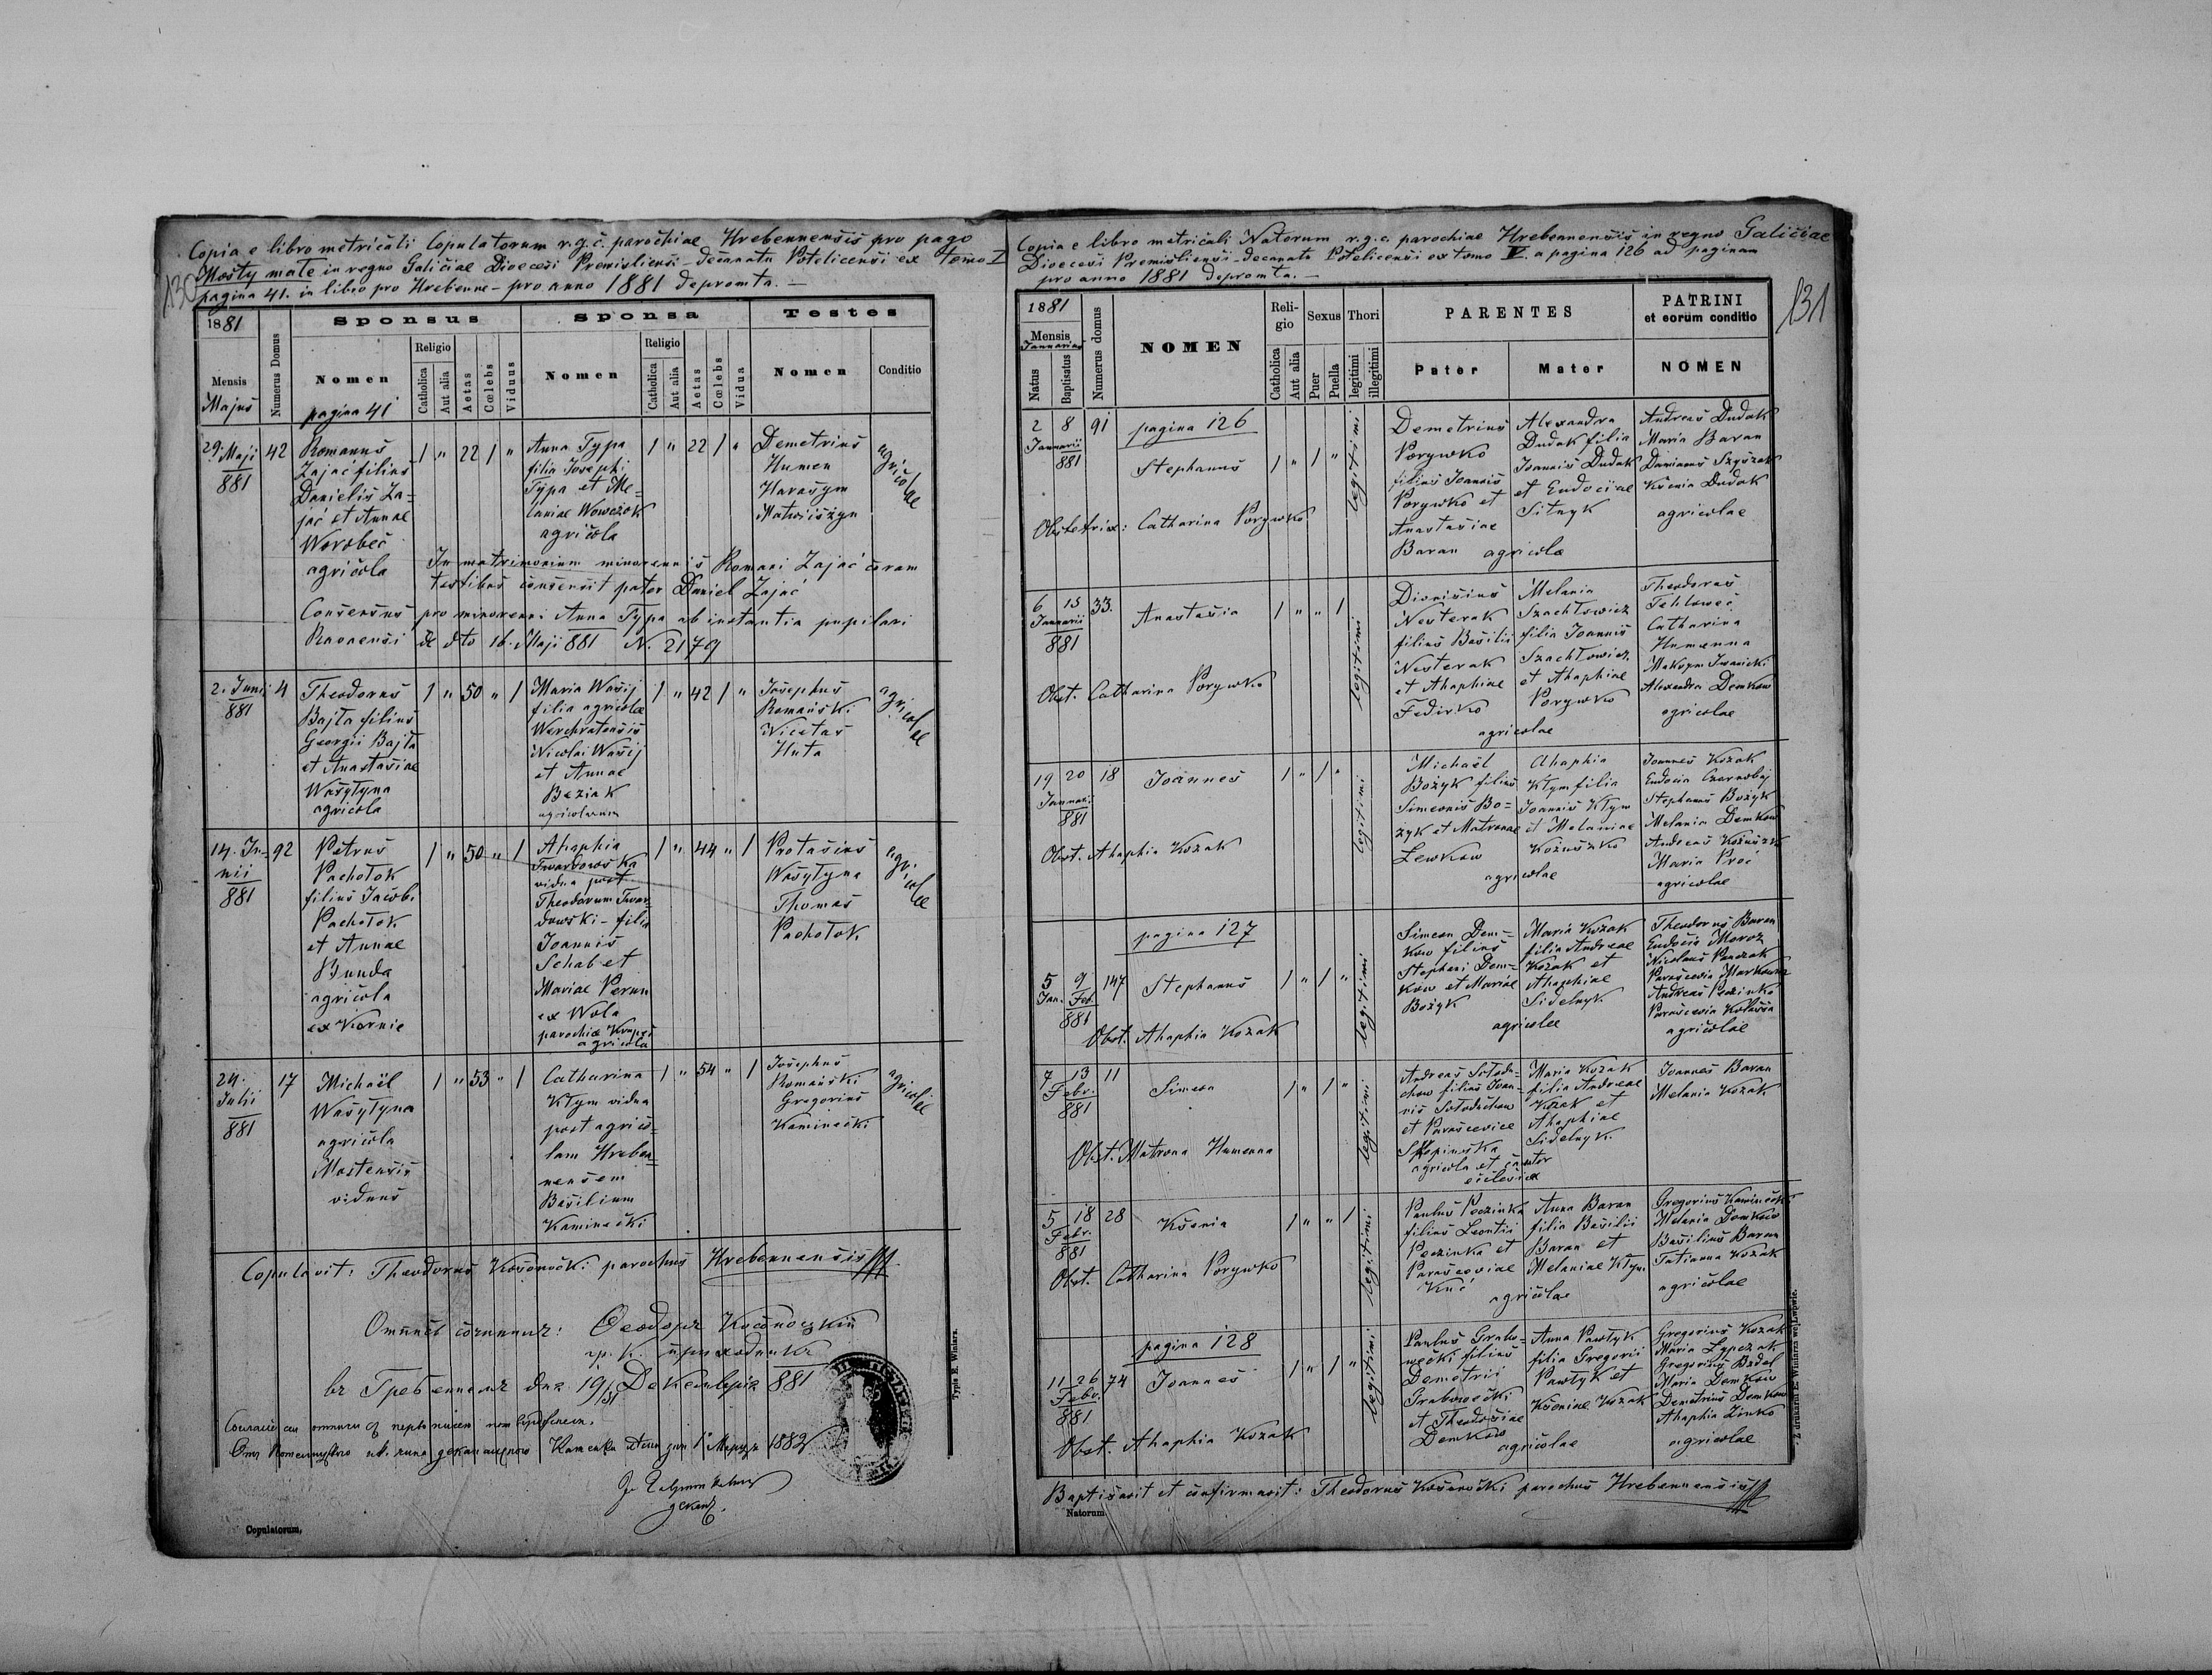 Copia e libro metricali Copulatorum r.g.c. parochiae Hrebennensis pro pago
Mosty małe in regno Galiciae Dioecesi Premisliensi - decanatu Potelicensi ex tomo I
pagina 41. in libro pro Hrebenne - pro anno 1881 depromta. —
130
1881
Numerus Domus
Sponsus
Sponsa
Testes
Mensis
Majus
Nomen
pagina 41
Religio
Catholica
Aut alia
Aetas
Cœlebs
Viduus
Nomen
Religio
Catholica
Aut alia
Aetas
Cœlebs
Vidua
Nomen
Conditio
29. Maji
881
42
Romanus
Zając filius
Danielis Za=
jąc et Annae
Worobec
agricola
1 " 22 1 "
Anna Typa
filia Josephi
Typa et Me=
laniae Wowczok
agricola
1 " 22 1 "
Demetrius
Humen
Harasym
Matwiiszyn
agricolae
In matrimonium minorennis Romani Zając coram
testibus consensit pater Daniel Zając
Consensus pro minorenni Anna Typa ab instantia pupilari
Ravaensi de dto 16. Maji 881 N. 2179
2. Junii
881
4
Theodorus
Bajta filius
Georgii Bajta
et Anastasiae
Wasytyna
agricola
1 " 50 " 1
Maria Wasij
filia agricolae
Werchratensis
Nicolai Wasij
et Annae
Beziak
agricolarum
1 " 42 1 "
Josephus
Romański
Nicetas
Huta
agricolae
14. Ju=
nii
881
92
Petrus
Pachotok
filius Jacobi
Pachotok
et Annae
Bunda
agricola
ex Kornie
1 " 50 " 1
Ahaphia
Twardowska
vidua post
Theodorum Twar=
dowski - filia
Joannis
Schab et
Mariae Perun
ex Wola
parochiae
agricola
1 " 44 " 1
Protasius
Wasytyna
Thomas
Pachotok
agricolae
24.
Julii
881
17
Michaël
Wasytyna
agricola
Mostensis
viduus
1 " 53 " 1
Catharina
Kłym vidua
post agrico=
lam Hreben=
nensem
Basilium
Kaminecki
1 " 54 " 1
Josephus
Romański
Gregorius
Kaminecki
agricolae
Copulavit: Theodorus Kosonocki parochus Hrebennensis
Ѳеодоръ Косоноцкій
гр. к.
въ Гребенномъ дня 19/31 Декемврія 881
1882
Typis E. Winiarz.
Copulatorum.
Copia e libro metricali Natorum r.g.c. parochiae Hrebennensis in regno Galiciae
Dioecesi Premisliensi - decanatu Potelicensi ex tomo V. a pagina 126 ad paginam
pro anno 1881 depromta. —
131
1881
Mensis
Januarius
Natus
Baptisatus
Numerus domus
NOMEN
Reli-
gio
Catholica
Aut alia
Sexus
Puer
Puella
Thori
legitimi
illegitimi
PARENTES
Pater
Mater
PATRINI
et eorum conditio
NOMEN
2 8
Januarii
881
91
pagina 126
Stephanus
1 " 1 "
legitimi
Obstetrix: Catharina Porywko
Demetrius
Porywko
filius Joannis
Porywko et
Anastasiae
Baran agricolae
Alexandra
Dudok filia
Joannis Dudok
et Eudociae
Sitnyk
Andreas Dudok
Maria Baran
Damianus Szyszak
Ksenia Dudok
agricolae
6 15
Januarii
881
33.
Anastasia
1 " " 1
legitimi
Obst. Catharina Porywko
Dionisius
Nesterak
filius Basilii
Nesterak
et Ahaphiae
Fedirko
agricolae
Melania
Szachtowicz
filia Joannis
Szachtowicz
et Ahaphiae
Porywko
Theodorus
Catharina
Humenna
Maksym Iwanicki
Alexandra Demkow
agricolae
19 20
Januar.
881
18
Joannes
1 " 1 "
legitimi
Obst. Ahaphia Kozak
Michaël
Bożyk filius
Simeonis Bo=
żyk et Matronae
Lewkow
agricolae
Ahaphia
Kłym filia
Joannis Kłym
et Melaniae
Kożuszko
Joannes Kozak
Eudocia Czornobaj
Stephanus Bożyk
Melania Demkow
Andreas Kożuszk
Maria Proć
agricolae
5 9
Jan. Feb.
881
147
pagina 127
Stephanus
1 " 1 "
legitimi
Obst. Ahaphia Kozak
Simeon Dem=
kow filius
Stephani Dem=
kow et Mariae
Bożyk
agricolae
Maria Kozak
filia Andreae
Kozak et
Ahaphiae
Sidelnyk
Theodorus Baran
Eudocia Moroz
Nicolaus Panczak
Parascevia Markowna
Andreas Peczinka
Parascevia
agricolae
7 13
Febr.
881
11
Simeon
1 " 1 "
legitimi
Obst. Matrona Humenna
Andreas Sołodu=
chow filius Joan=
nis Sołoduchow
et Parasceviae
agricola et cantor
Maria Kozak
filia Andreae
Kozak et
Ahaphiae
Sidelnyk.
Joannes Baran
Melania Kozak
5 18
Febr.
881
28
Ksenia
1 " " 1
legitimi
Obst. Catharina Porywko
Paulus Peczinka
filius Leontii
Peczinka et
Parasceviae
Kuć
agricolae
Anna Baran
filia Basilii
Baran et
Melaniae Kłym
Gregorius Kaminecki
Melania Demkow
Basilius Baran
Tatianna Kozak
agricolae
11 26
Febr.
881
74
pagina 128
Joannes
1 " 1 "
legitimi
Obst. Ahaphia Kozak
Paulus Grabo=
wecki filius
Demetrii
Grabowecki
et Theodosiae
Demkow
agricolae
Anna Pawłyk
filia Gregorii
Pawłyk et
Kseniae Kozak
Gregorius Kozak
Maria Lypczak
Gregorius Budel
Maria Demkow
Demetrius Demkow
Ahaphia Zinko
agricolae
Baptisavit et confirmavit: Theodorus Kosonocki parochus Hrebennensis
Natorum
Z drukarni E. Winiarza we Lwowie.